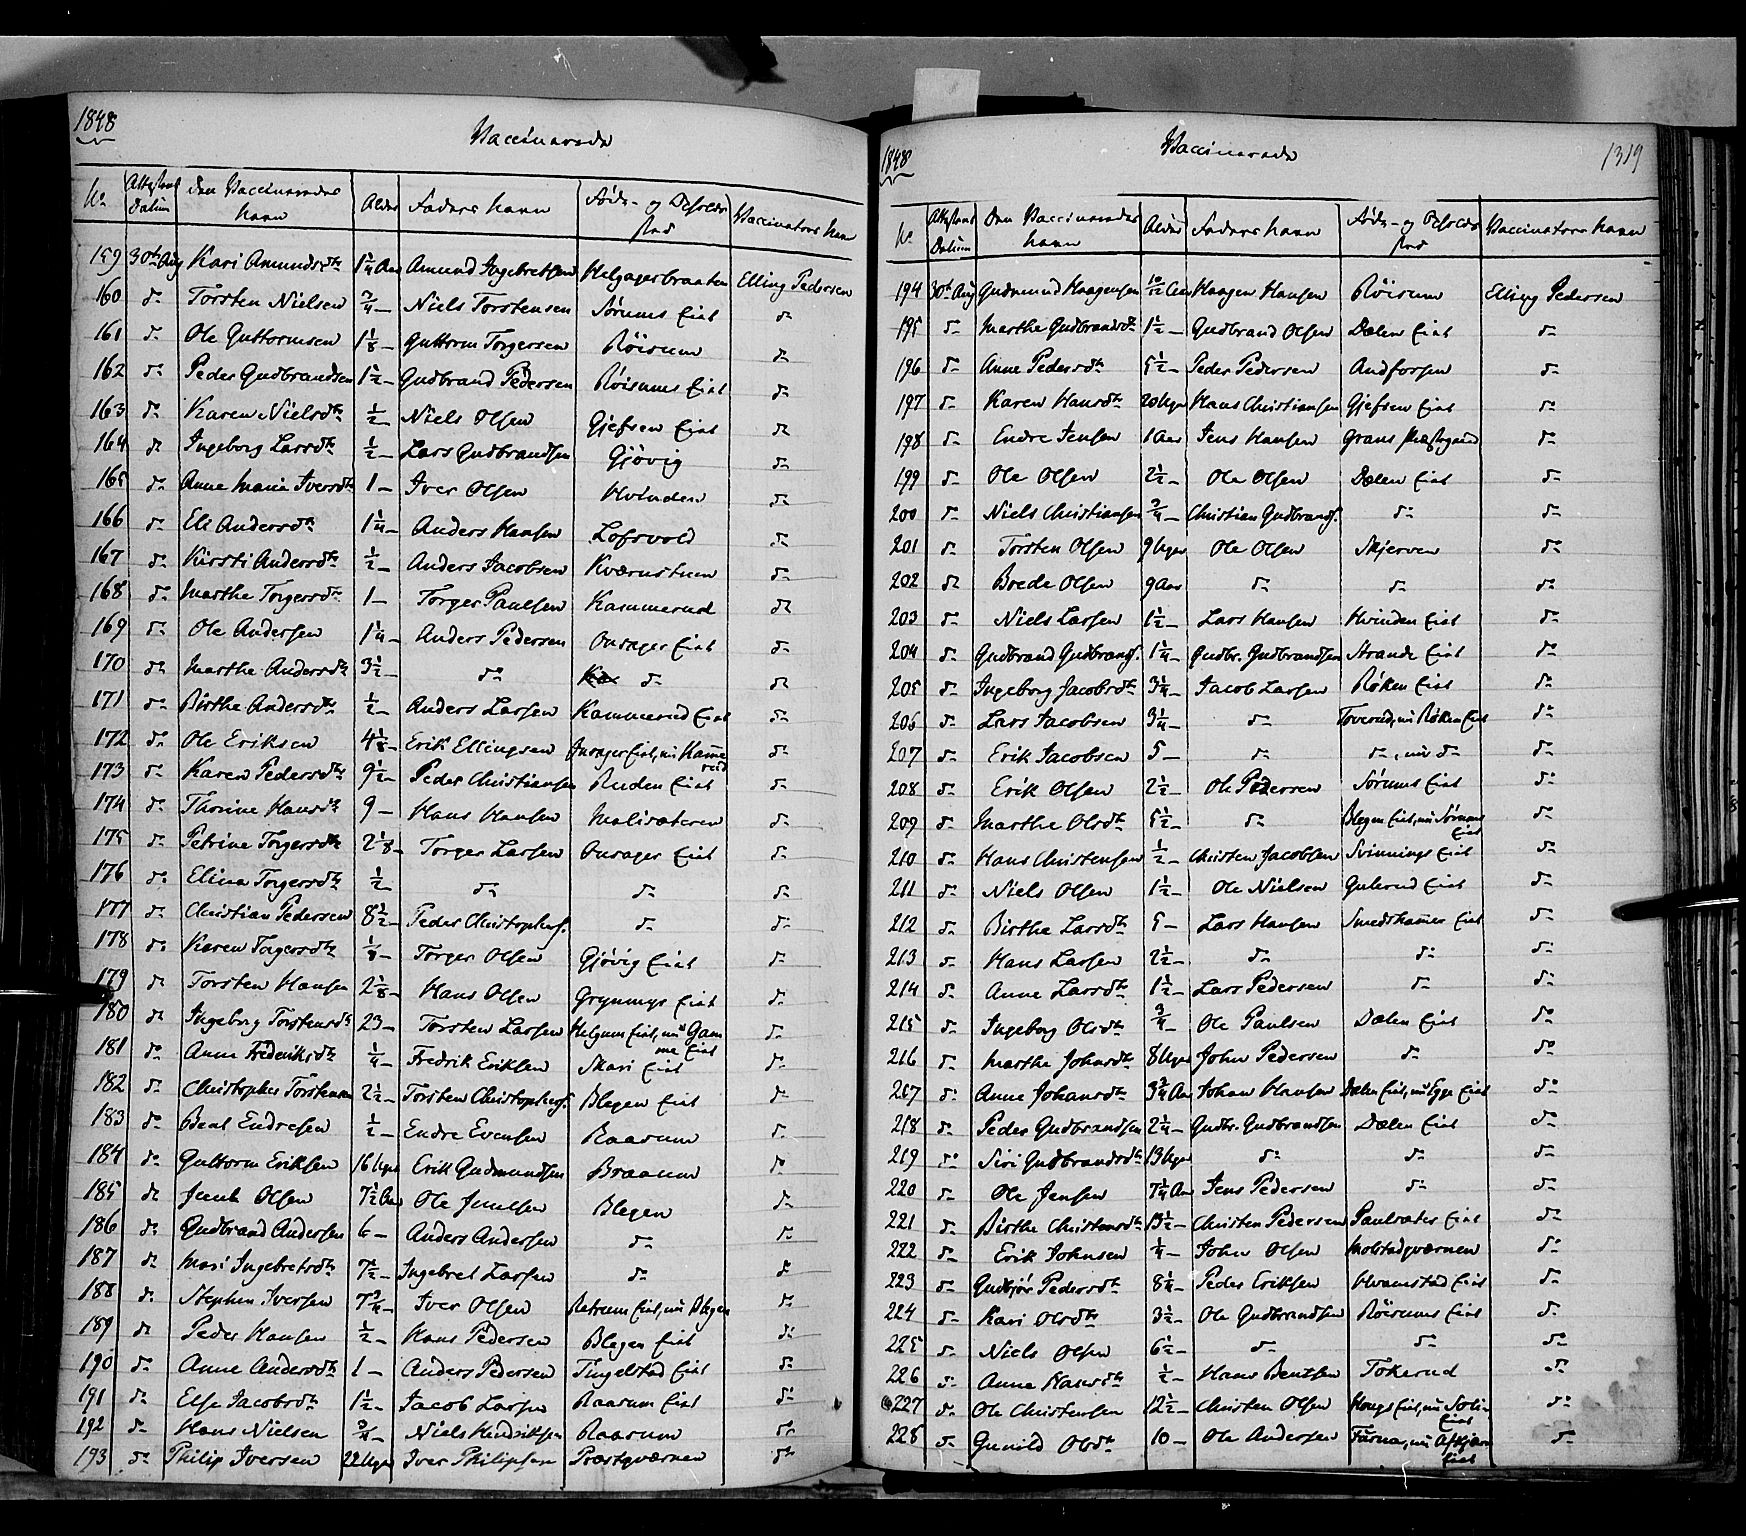 1848
Vaccinerede
No Attestens Datum Den Vaccineredes Navn Alder Faders Navn Føde- og Opholds Sted Vaccinators Navn
159 30te Aug Kari Amundsdtr 1 1/4 Aar Amund Ingebretsen Helgagerbraaten Elling Pedersen
160 do Torsten Nielsen 3/4 – Niels Torstensen Sørums Eiet do
161 do Ole Guttormsen 1 1/8 – Guttorm Torgersen Røisum do
162 do Peder Gudbrandsen 1 1/2 – Gudbrand Pedersen Røisums Eiet do
163 do Karen Nielsdtr 1/2 – Niels Olsen Gjefsen Eiet do
164 do Ingeborg Larsdtr 1/2 – Lars Gudbrandsen Gjøvig do
165 do Anne Maria Iversdtr 1 – Iver Olsen Hvinden do
166 do Eli Andersdtr 1 1/4 – Anders Hansen Lofsvold do
167 do Kirsti Andersdtr 1/2 – Anders Jacobsen Kværnstuen do
168 do Marthe Torgersdtr 1 – Torger Paulsen Kammerud do
169 do Ole Andersen 1 1/4 – Anders Pedersen Onsager Eiet do
170 do Marthe Andersdtr 3 1/2 – do do do
171 do Birthe Andersdtr 1/2 – Anders Larsen Kammerud Eiet do
172 do Ole Eriksen 4 1/8 – Erik Ellingsen Onsager Eiet, nu Kamme
rud do
173 do Karen Pedersdtr 9 1/2 – Peder Christiansen Ruden Eiet do
174 do Thorine Hansdtr 9 – Hans Hansen Malisæteren do
175 do Petrine Torgersdtr 2 1/8 – Torger Larsen Onsager Eiet do
176 do Elina Torgersdtr 1/2 – do do do
177 do Christian Pedersen 8 1/2 – Peder Christophers. do do
178 do Karen Torgersdtr 1/8 – Torger Olsen Gjøvig Eiet do
179 do Torsten Hansen 2 1/8 – Hans Olsen Grynnings Eiet do
180 do Ingeborg Torstensdtr 23 – Torsten Larsen Helgum Eiet, nu Gam
me Eiet do
181 do Anne Frederiksdtr 1/4 – Fredrik Eriksen Skari Eiet do
182 do Christopher Torstensen 2 1/2 – Torsten Christophers. Blegen Eiet do
183 do Bent Endresen 1/2 – Endre Evensen Raasum do
184 do Guttorm Eriksen 16 Uger Erik Gudmundsen Braasum do
185 do Juul Olsen 7 1/2 Aar Ole Juulsen Blegen do
186 do Gudbrand Andersen 6 – Anders Andersen do do
187 do Mari Ingebretsdtr 7 1/2 – Ingebret Larsen do do
188 do Stephen Iversen 7 3/4 – Iver Olsen Retrum Eiet, nu Blegen do
189 do Peder Hansen 1/2 – Hans Pedersen Blegen Eiet do
190 do Anne Andersdtr 1 – Anders Pedersen Tingelstad Eiet do
191 do Else Jacobsdtr 1 1/2 – Jacob Larsen Raasum Eiet do
192 do Hans Nielsen 3/4 – Niels Hendriksen Raasum do
193 do Philip Iversen 22 Uger Iver Philipsen Præstqværnen do
1848
Vaccinerede
1319
No Attestens Datum Den Vaccineredes Navn Alder Faders Navn Føde- og Opholds Sted Vaccinators Navn
194 30te Aug Gudmund Haagensen 10/12 Aar Haagen Hansen Røisum Elling Pedersen
195 do Marthe Gudbrandsdtr 1 1/2 – Gudbrand Olsen Dælen Eiet do
196 do Anne Pedersdtr 5 1/2 – Peder Pedersen Andforsen do
197 do Karen Hansdtr 20 Uger Hans Christiansen Gjefsen Eiet do
198 do Endre Jensen 1 Aar Jens Hansen Grans Præstegaard do
199 do Ole Olsen 2 1/2 – Ole Olsen Dælen Eiet do
200 do Niels Christiansen 3/4 – Christian Gudbrands. do do
201 do Torsten Olsen 9 Uger Ole Olsen Skjerven do
202 do Brede Olsen 9 Aar do do do
203 do Niels Larsen 1 1/2 – Lars Hansen Hvinden Eiet do
204 do Gudbrand Gudbrands. 1 1/4 – Gudbr. Gudbrandsen Strande Eiet do
205 do Ingeborg Jacobsdtr 3 1/4 – Jacob Larsen Røken Eiet do
206 do Lars Jacobsen 3 1/4 – do Toverud, nu Røken Eiet do
207 do Erik Jacobsen 5 – do do, nu do do
208 do Erik Olsen 2 1/2 – Ole Pedersen Sørums Eiet do
209 do Marthe Olsdtr 5 1/2 – do Blegen Eiet, nu Sørums
Eiet do
210 do Hans Christensen 1/2 – Christen Jacobsen Svinnings Eiet do
211 do Niels Olsen 1 1/2 – Ole Nielsen Gulerud Eiet do
212 do Birthe Larsdtr 5 – Lars Hansen Smedshamer Eiet do
213 do Hans Larsen 2 1/2 – do do do
214 do Anne Larsdtr 1 1/2 – Lars Pedersen do do
215 do Ingeborg Olsdtr 3/4 – Ole Paulsen Dælen Eiet do
216 do Marthe Johnsdtr 8 Uger John Pedersen do do
217 do Anne Johansdtr 3 3/4 Aar Johan Hansen Dælen Eiet, nu Egge Eiet do
218 do Peder Gudbrandsen 2 1/4 – Gudbr. Gudbrandsen Dælen Eiet do
219 do Siri Gudbrandsdtr 13 Uger do do do
220 do Ole Jensen 7 1/4 Aar Jens Pedersen do do
221 do Birthe Christensdtr 13 1/2 – Christen Pedersen Paulsæter Eiet do
222 do Erik Johnsen 1/4 – John Olsen Molstadqværnen do
223 do Gudbjør Pedersdtr 8 1/4 – Peder Eriksen Hvamstad Eiet do
224 do Kari Olsdtr 3 1/2 – Ole Gudbrandsen Røisums Eiet do
225 do Niels Olsen 6 1/2 – do do do
226 do Anne Hansdtr 1/2 – Hans Bentsen Tokerud do
227 do Ole Christensen 12 1/2 – Christen Olsen Kongs Eiet, nu
Eiet do
228 do Gunild Olsdtr 10 – Ole Andersen nu
Eiet do